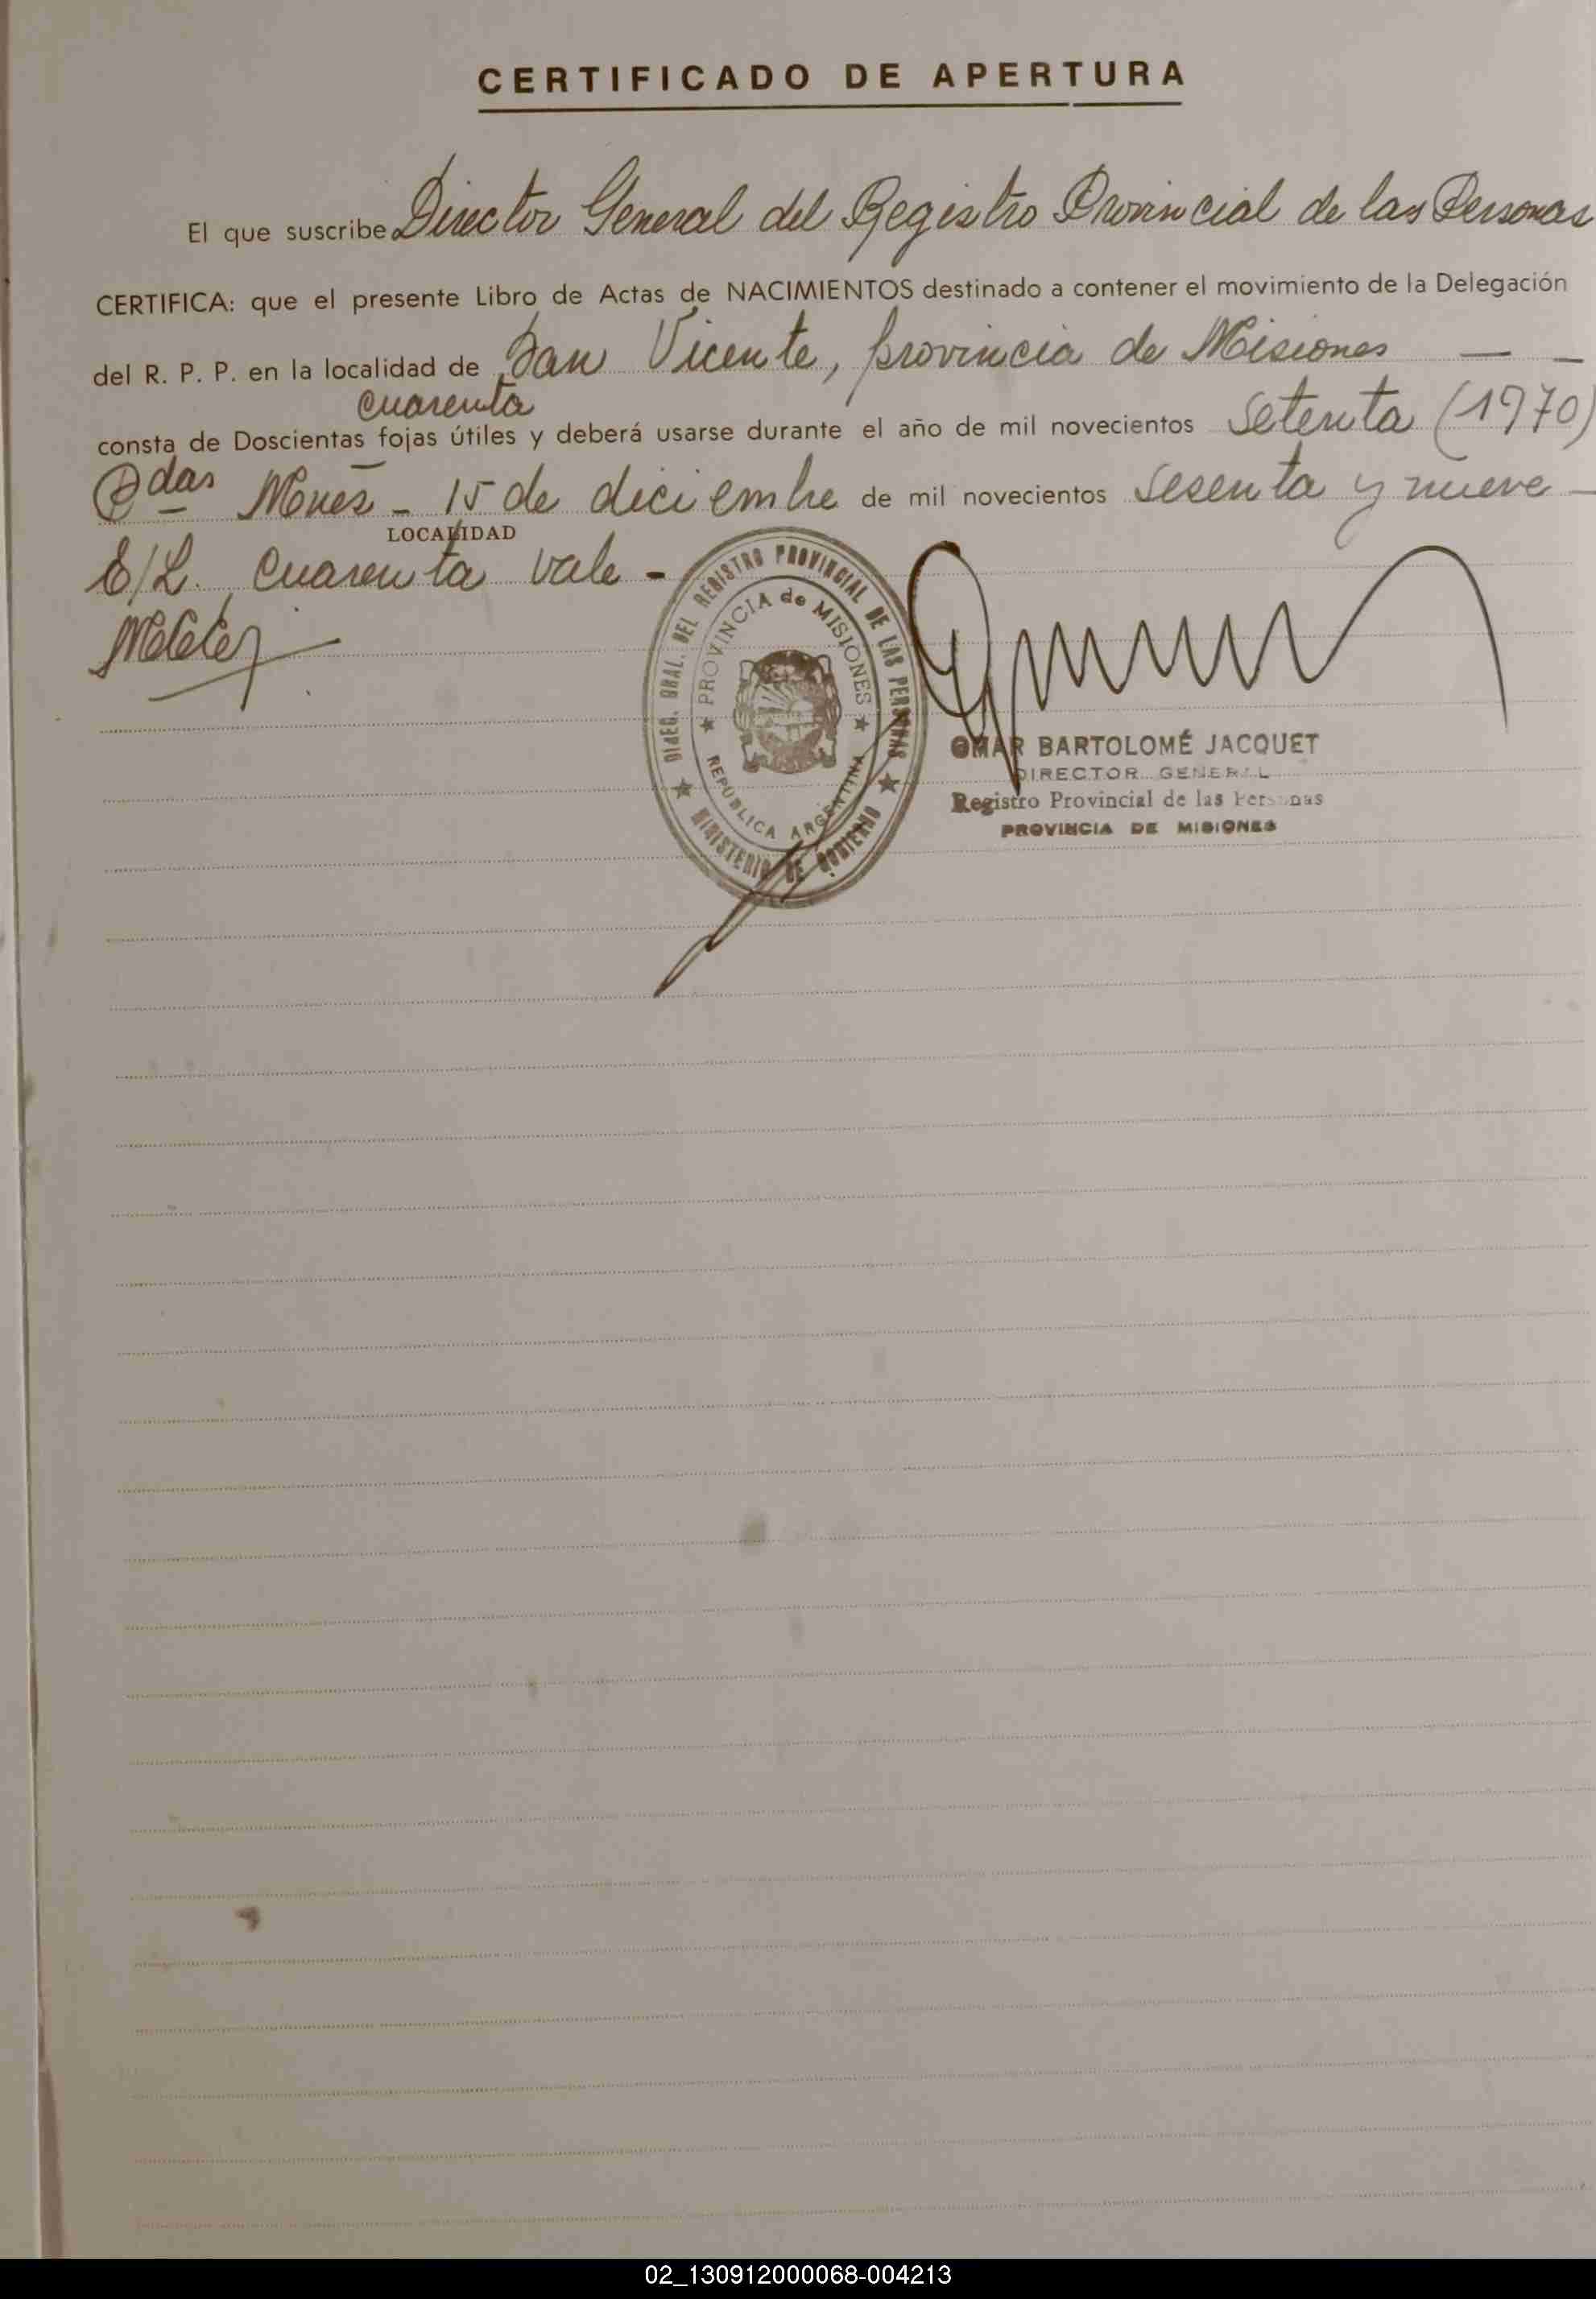 CERTIFICADO DE APERTURA
El que suscribe Director General del Registro Provincial de las Personas
CERTIFICA: que el presente Libro de Actas de NACIMIENTOS destinado a contener el movimiento de la Delegación
del R. P. P. en la localidad de San Vicente, provincia de Misiones — —
cuarenta
consta de Doscientas fojas útiles y deberá usarse durante el año de mil novecientos Setenta (1970)
Pdas Mnes - 15 de diciembre de mil novecientos sesenta y nueve -
LOCALIDAD
E/L. Cuarenta vale -
DIREC. GRAL. DEL REGISTRO PROVINCIAL DE LAS PERSONAS
PROVINCIA de MISIONES
REPUBLICA ARGENTINA
MINISTERIO DE GOBIERNO
OMAR BARTOLOMÉ JACQUET
DIRECTOR GENERAL
Registro Provincial de las Personas
PROVINCIA DE MISIONES
02_130912000068-004213